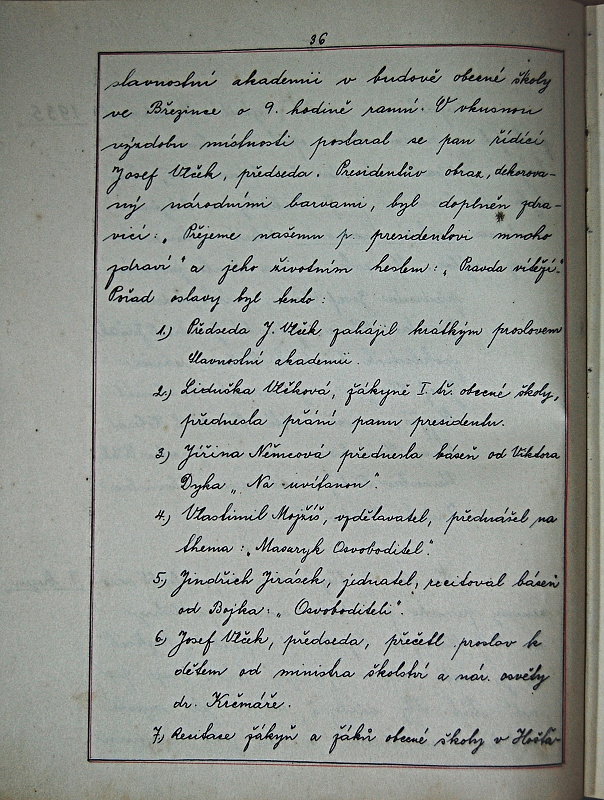 36
slavnostní akademii v budově obecné školy
ve Březince o 9. hodině ranní. O vkusnou
výzdobu místnosti postaral se pan řídící
Josef Vlček, předseda. Presidentův obraz, dekorova-
ný národními barvami, byl doplněn zdra-
vicí: „Přejeme našemu p. presidentovi mnoho
zdraví" a jeho životním heslem: „Pravda vítězí."
Pořad oslavy byl tento:
1.) Předseda J. Vlček zahájil krátkým proslovem
slavnostní akademii.
2.) Liduška Vlčková, žákyně I. tř. obecné školy,
přednesla přání panu presidentu.
3.) Jiřina Němcová přednesla báseň od Viktora
Dyka „Na uvítanou".
4.) Vlastimil Mojžíš, vzdělavatel, přednášel na
thema: „Masaryk Osvoboditel".
5.) Jindřich Jirásek, jednatel, recitoval báseň
od Bojka: „Osvoboditeli".
6.) Josef Vlček, předseda, přečetl proslov k
dětem od ministra školství a nár. osvěty
dr. Krčmáře.
7.) Recitace žákyň a žáků obecné školy v Hošťa-